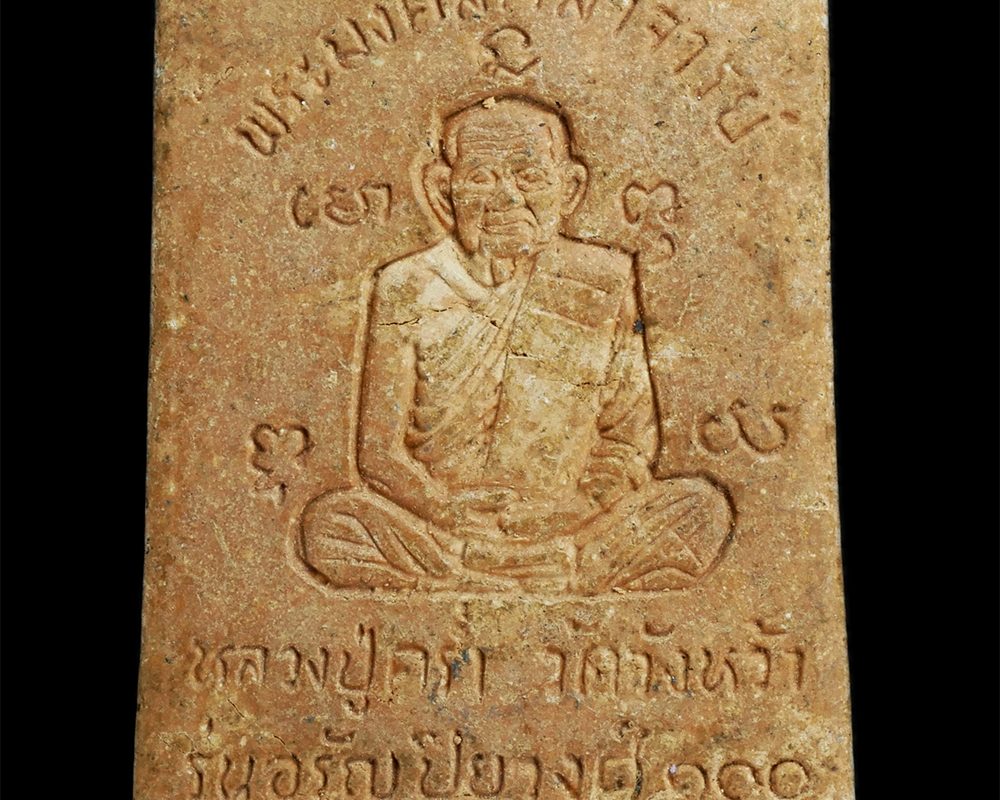 พระมงคลศีลาจารย์
หลวงปู่คร่ำ วัดวังหว้า
รุ่นอรัญ ปิยวงศ์ ๑๐๐